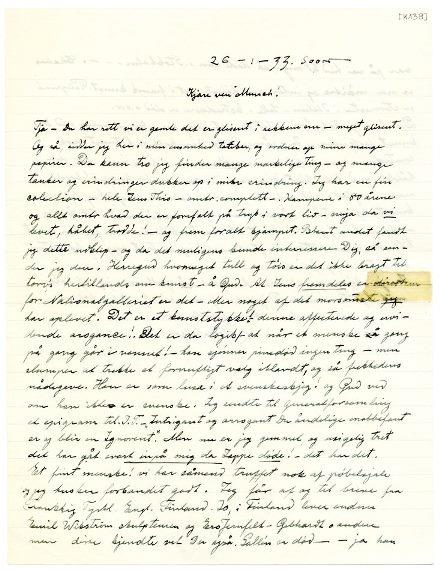 [K138]
26-1-33. Soon
Kjære ven Munch!
Tja - Du har rett vi er gamle det er glisent i rekkene - meget glisent.
Og så sidder jeg her i min ensomhed og ordner op mine mange
papirer. Du kann tro jeg finder mange merkelige ting - og mange
tanker og erindringer dukker op i min erindring. Jeg har en fin
colection - hele Jens Thiis - omtr. complett. - Kampene i 80 årene
og allt omtr hvad der er forefalt på tryk i vort liv - mens da vi
levet, håbet, trodde! - og frem for alt kjæmpet. Blant andet fandt
jeg dette utklip - og da det muligens kunde interessere Dig, så sen-
der jeg det. Herregud hvormeget tull og tøis er det ikke bragt til
torvs herhillands om kunst - å Gud. At Jens fremdeles er direktør
for Nationalgalleriet er det - Mer noget af det morsomste jeg
har oplevet. Det er et kunststykke! denne affecterede og
dende arrogance! Det er da logisk at når et menneske gang
på gang gör - han skjønner pinedöd ingenting - men
slumper at trekke et fornuftigt valg iblandt, og så
nådegave. Han er som lusa i et og Gud ved
om han ikke er svenske. Jeg sendte til generalforsamling
et epigram til J.T. "Intrigant og arrogant
er og blir en Ignorent". Men nu er jeg gammel og usigelig tret
det har gåt svært inpå mig da Jeppe döde! - det har det.
Et fint menneske! vi har såmend truffet nok af pöbelsjele
og jeg husker forbandet godt. Jeg får af og til breve fra
Frankrig Tyskl. Engl. Finland. Jo, i Finland lever endnu
Emil Wikström skulptören og Eero Järnefelt - Gebhardt o andre
men dem kjendte vel Du også. Gallén er död - ja han